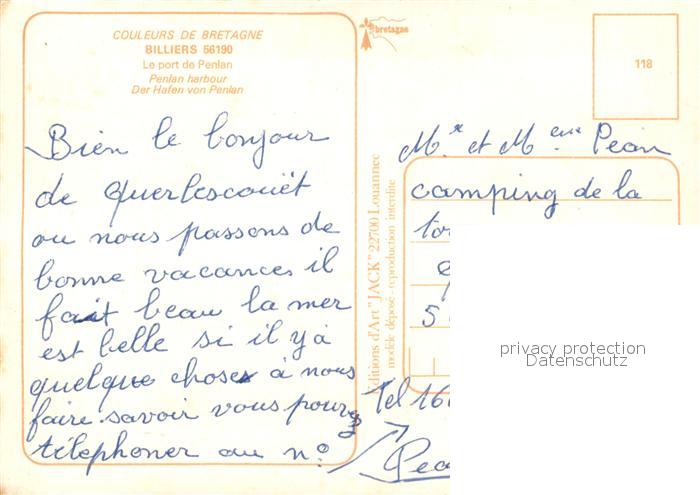 COULEURS DE BRETAGNE
BILLIERS 56190
Le port de Penlan
Penlan harbour
Der Hafen von Penlan
bretagne
118
Bien le bonjour
de Querlescouët
ou nous passons de
bonne vacances il
fait beau la mer
est belle si il y à
quelque choses à nous
faire savoir vous pouvez
téléphoner au n°
Editions d'Art "JACK" 22700 Louannec
modèle déposé - reproduction interdite
Mr et Mme Pean
camping de la
5
Tel 16
Pea
privacy protection
Datenschutz